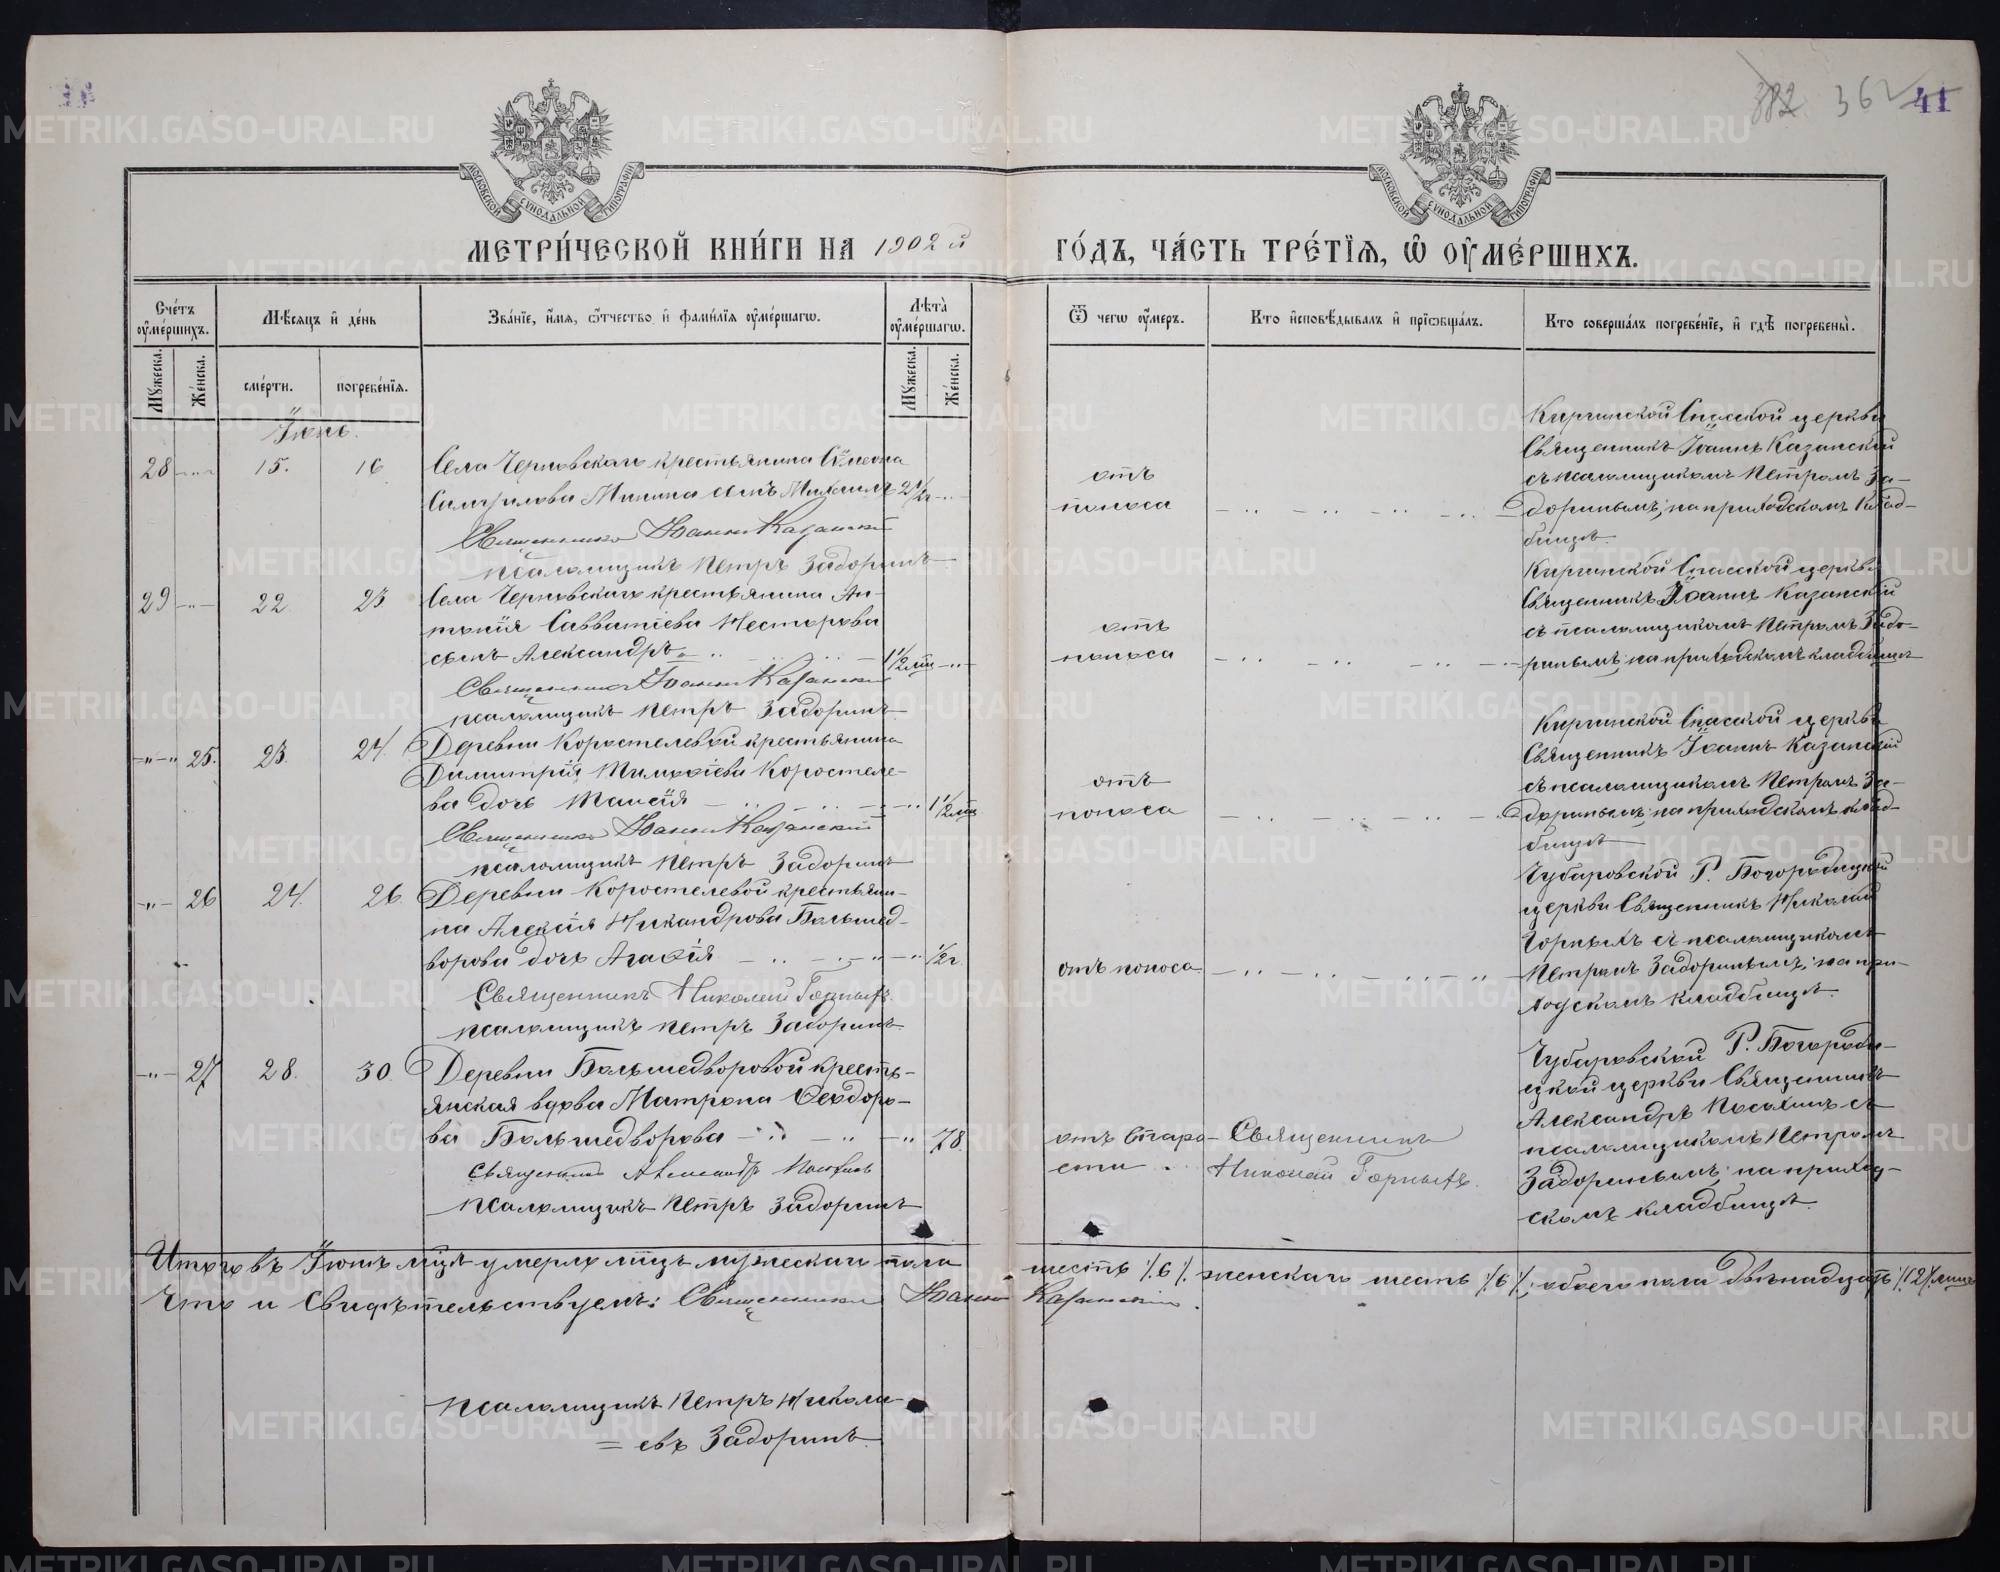 382 362 41
МОСКОВСКОЙ СѴНОДАЛЬНОЙ ТИПОГРАФІИ
МОСКОВСКОЙ СѴНОДАЛЬНОЙ ТИПОГРАФІИ
МЕТРИ́ЧЕСКОЙ КНИ́ГИ НА 1902 й ГО́ДЪ, ЧА́СТЬ ТРЕ́ТІѦ, Ѡ҆ ОУ҆МЕ́РШИХЪ.
Сче́тъ оу҆ме́ршихъ.
Мѣ́сѧцъ и҆ де́нь
Зва́нїе, и҆́мѧ, ѻ҆́тчество и҆ фами́лїѧ оу҆ме́ршагѡ.
Лѣ̑та оу҆ме́ршагѡ.
Ѿ чегѡ̀ оу҆́меръ.
Кто̀ и҆сповѣ́дывалъ и҆ прїѡбща́лъ.
Кто̀ соверша́лъ погребе́нїе, и҆ гдѣ̀ погребены̀.
Мꙋ́жеска.
Же́нска.
сме́рти.
погребе́нїѧ.
Мꙋ́жеска.
Же́нска.
Іюнь.
28 -"- 15. 16
Села Черновскаго крестьянина Сѵмеона
Самуилова Минина сынъ Михаилъ 2 1/2 г -"-
Священникъ Іоаннъ Казанскій
псаломщикъ Петръ Задоринъ
отъ
поноса
Киргинской Спасской церкви
Священникъ Іоаннъ Казанскій
съ псаломщикомъ Петромъ За-
доринымъ; на приходскомъ клад-
бищѣ.
29 -"- 22 23
Села Черновскаго крестьянина Ан-
тонія Савватіева Нестерова
сынъ Александръ 1 1/2 мц -"-
Священникъ Іоаннъ Казанскій
псаломщикъ Петръ Задоринъ
отъ
поноса
Киргинской Спасской церкви
Священникъ Іоаннъ Казанскій
съ псаломщикомъ Петромъ Задо-
ринымъ; на приходскомъ кладбищѣ
-"- 25. 23. 24.
Деревни Коростелевой крестьянина
Димитрія Тимоѳіева Коростеле-
ва дочь Таисія -"- 1 1/2 мц
Священникъ Іоаннъ Казанскій
псаломщикъ Петръ Задоринъ
отъ
поноса
Киргинской Спасской церкви
Священникъ Іоаннъ Казанскій
съ псаломщикомъ Петромъ За-
доринымъ; на приходскомъ клад-
бищѣ
-"- 26 24. 26.
Деревни Коростелевой крестьяни-
на Алексія Никандрова Большед-
ворова дочь Агаѳія -"- 1/2 г.
Священникъ Николай Горныхъ.
псаломщикъ Петръ Задоринъ
отъ поноса.
Чубаровской Р. Богородицкой
церкви Священникъ Николай
Горныхъ съ псаломщикомъ
Петромъ Задоринымъ; на при-
ходскомъ кладбищѣ.
-"- 27 28. 30.
Деревни Большедворовой кресть-
янская вдова Матрона Ѳеодоро-
ва Большедворова -"- 78.
Священникъ Александръ Посохинъ
псаломщикъ Петръ Задоринъ
отъ старо-
сти.
Священникъ
Николай Горныхъ.
Чубаровской Р. Богороди-
цкой церкви Священникъ
Александръ Посохинъ съ
псаломщикомъ Петромъ
Задоринымъ; на приход-
скомъ кладбищѣ.
Итого въ Іюнѣ мцѣ умерло лицъ мужескаго пола шесть /.6/. женскаго шесть /.6/., обоего пола двѣнадцать /.12/. лицъ
Что и свидѣтельствуемъ: Священникъ Іоаннъ Казанскій.
псаломщикъ Петръ Никола-
= евъ Задоринъ.
METRIKI.GASO-URAL.RU